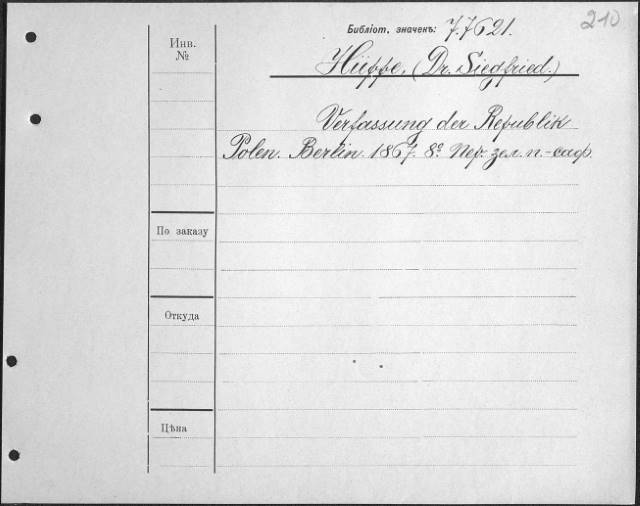 210
Библіот. значекъ: 7.7621.
Инв.
№
Hüppe, (Dr. Siegfried.)
Verfassung der Republik
Polen. Berlin. 1867. 8º. Пер. зел. п.-саф.
По заказу
Откуда
Цѣна